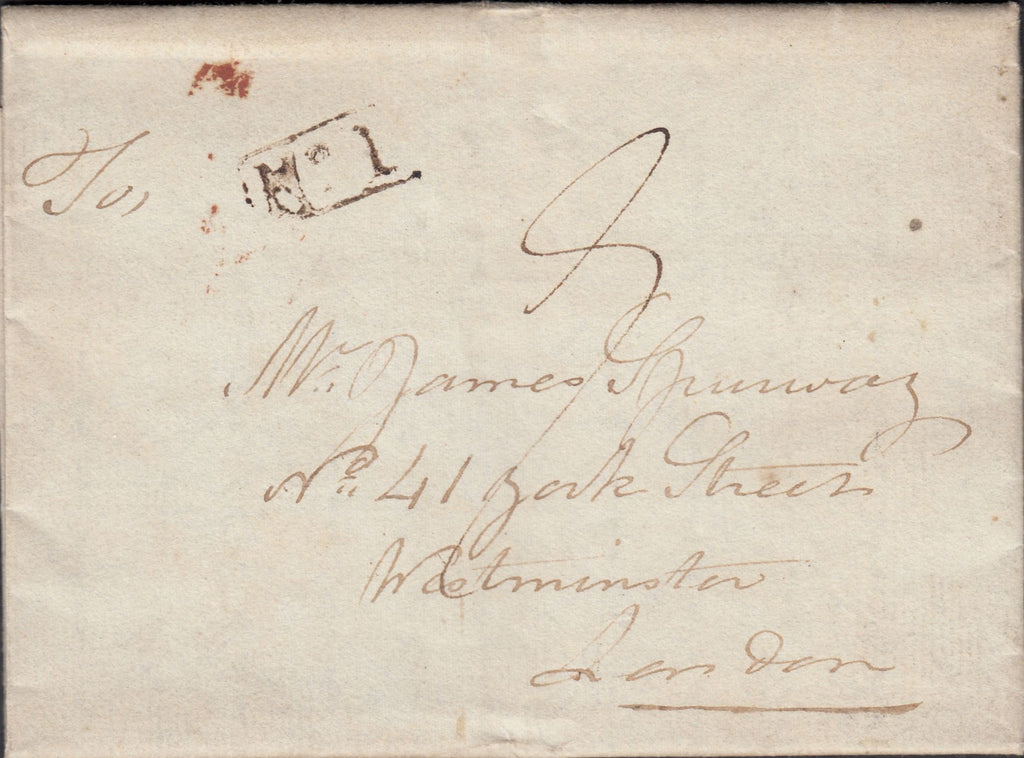 To,
No. 1
Mr. James Spurway
No. 41 york Street
Westminster
London